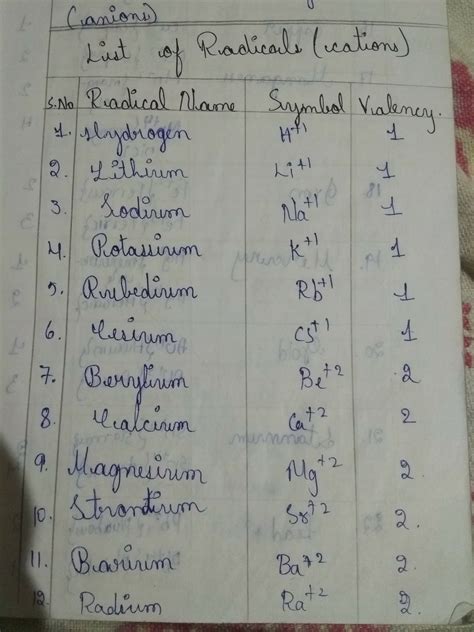 (anions)
List of Radicals (cations)
S.No Radical Name Symbol Valency.
1. Hydrogen H+1 1
2. Lithium Li+1 1
3. Sodium Na+1 1
4. Potassium K+1 1
5. Rubedium Rb+1 1
6. Cesium Cs+1 1
7. Berylium Be+2 2
8. Calcium Ca+2 2
9. Magnesium Mg+2 2.
10. Strontium Sr+2 2.
11. Barium Ba+2 2.
12. Radium Ra+2 2.